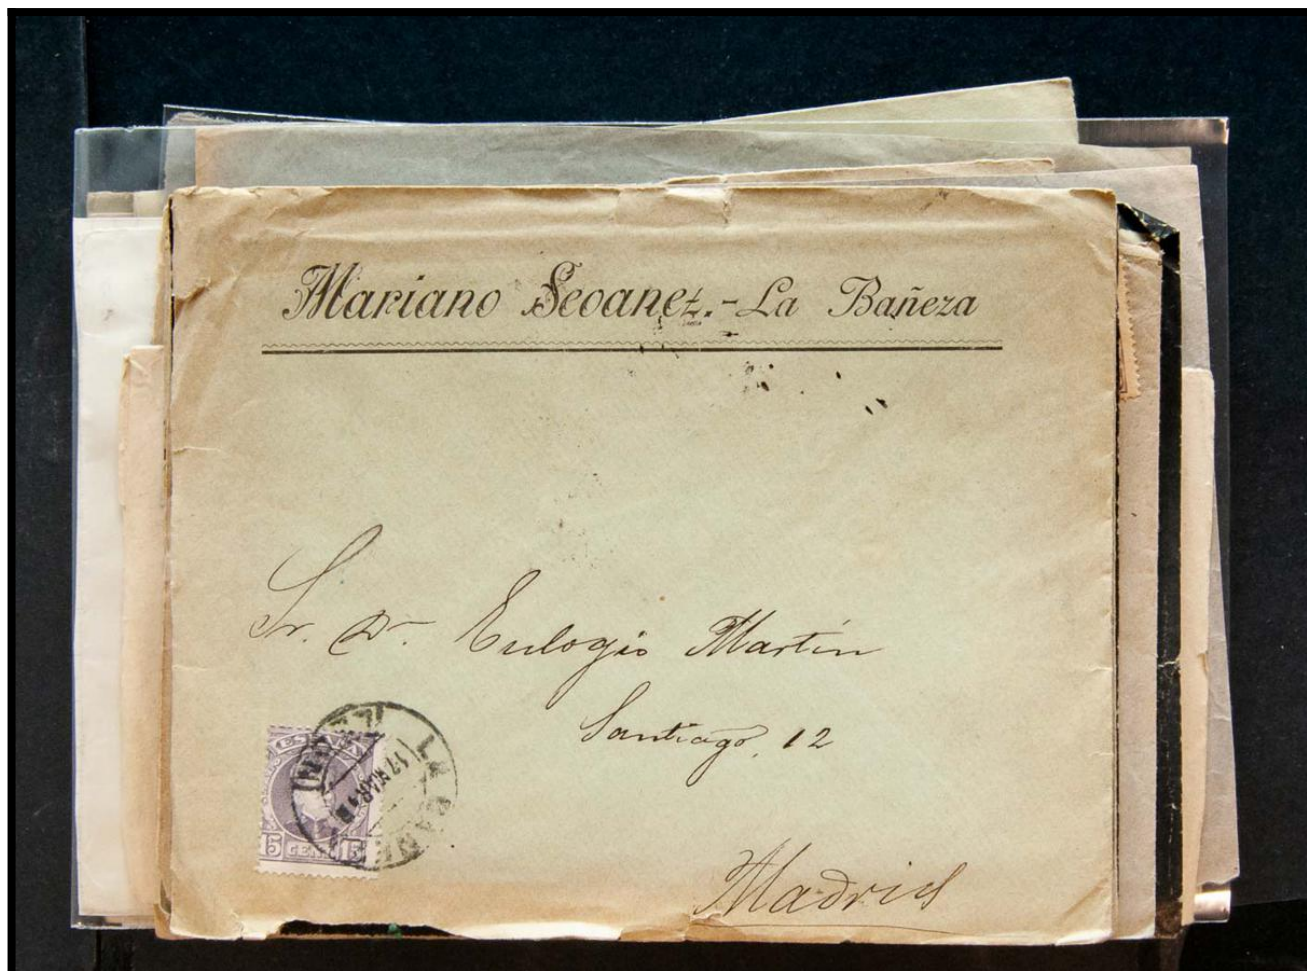 Mariano Seoanez.-La Bañeza
Sr. Dn. Eulogio Martín
Santiago, 12
Madrid
ESPAÑA
15 CENT. 15
LA BAÑEZA
(LEON)
17 MAR